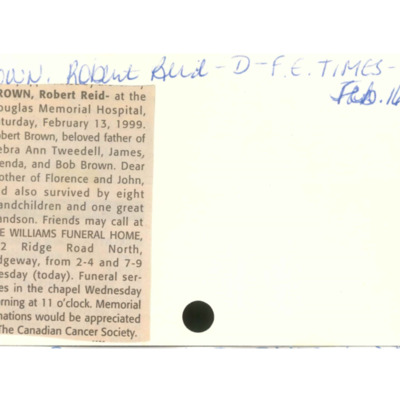 OWN. Robert Reid - D - F.E. TIMES -
Feb. 16
ROWN, Robert Reid- at the
ouglas Memorial Hospital,
turday, February 13, 1999.
bert Brown, beloved father of
ebra Ann Tweedell, James,
enda, and Bob Brown. Dear
other of Florence and John,
d also survived by eight
andchildren and one great
andson. Friends may call at
E WILLIAMS FUNERAL HOME,
2 Ridge Road North,
dgeway, from 2-4 and 7-9
esday (today). Funeral ser-
es in the chapel Wednesday
orning at 11 o'clock. Memorial
nations would be appreciated
The Canadian Cancer Society.